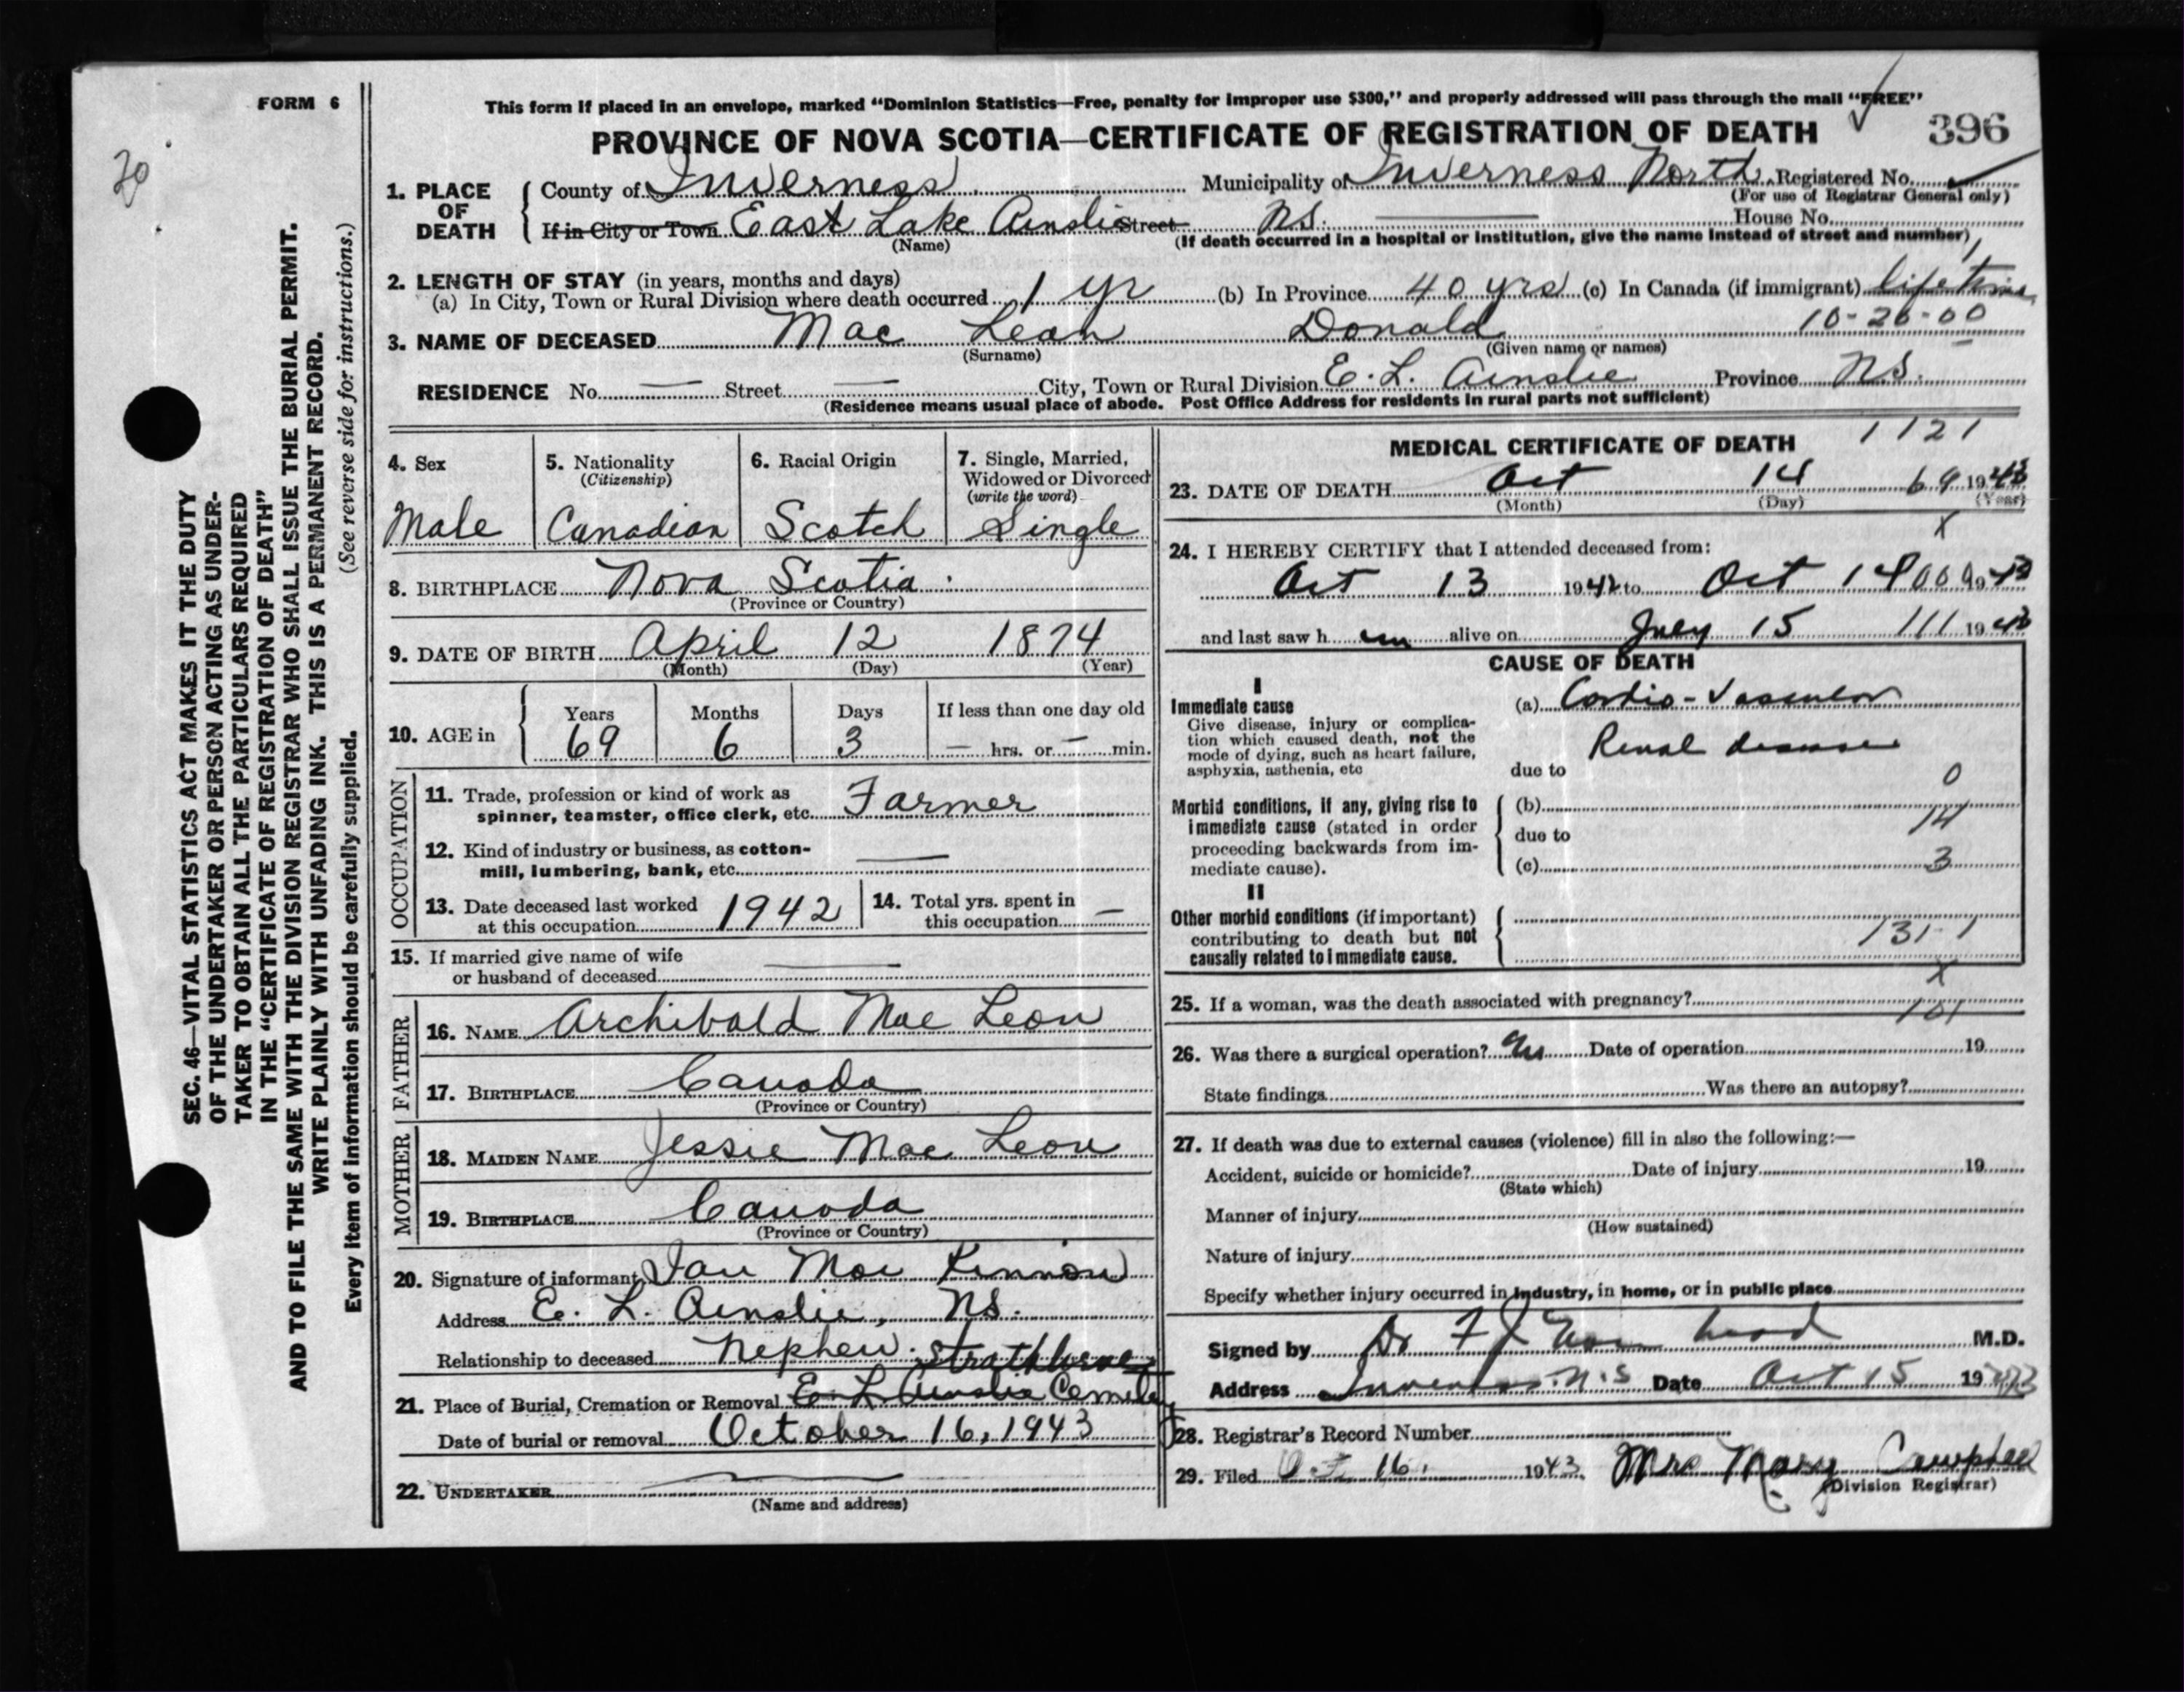 FORM 6
20
This form if placed in an envelope, marked “Dominion Statistics—Free, penalty for improper use $300,” and properly addressed will pass through the mail “FREE”
PROVINCE OF NOVA SCOTIA—CERTIFICATE OF REGISTRATION OF DEATH 396
1. PLACE OF DEATH { County of Inverness Municipality of Inverness North Registered No.
(For use of Registrar General only)
If in City or Town East Lake Ainslie Street N.S. House No.
(Name) (If death occurred in a hospital or institution, give the name instead of street and number)
2. LENGTH OF STAY (in years, months and days)
(a) In City, Town or Rural Division where death occurred 1 yr (b) In Province 40 yrs (c) In Canada (if immigrant) lifetime
10-26-00
3. NAME OF DECEASED Mac Lean Donald
(Surname) (Given name or names)
RESIDENCE No. — Street — City, Town or Rural Division E. L. Ainslie Province N.S.
(Residence means usual place of abode. Post Office Address for residents in rural parts not sufficient)
4. Sex 5. Nationality (Citizenship) 6. Racial Origin 7. Single, Married, Widowed or Divorced (write the word)
Male Canadian Scotch Single
8. BIRTHPLACE Nova Scotia
(Province or Country)
9. DATE OF BIRTH April 12 1874
(Month) (Day) (Year)
10. AGE in { Years Months Days If less than one day old
69 6 3 — hrs. or — min.
OCCUPATION
11. Trade, profession or kind of work as spinner, teamster, office clerk, etc. Farmer
12. Kind of industry or business, as cotton-mill, lumbering, bank, etc. —
13. Date deceased last worked at this occupation 1942 14. Total yrs. spent in this occupation —
15. If married give name of wife or husband of deceased —
FATHER
16. NAME Archibald Mac Lean
17. BIRTHPLACE Canada
(Province or Country)
MOTHER
18. MAIDEN NAME Jessie Mac Lean
19. BIRTHPLACE Canada
(Province or Country)
20. Signature of informant Ian Mac Kinnon
Address E. L. Ainslie, N.S.
Relationship to deceased Nephew
Strathlorne
21. Place of Burial, Cremation or Removal E. L. Ainslie Cemetery
Date of burial or removal October 16, 1943
22. UNDERTAKER —
(Name and address)
MEDICAL CERTIFICATE OF DEATH 1121
23. DATE OF DEATH Oct 14 69 1943
(Month) (Day) (Year)
X
24. I HEREBY CERTIFY that I attended deceased from:
Oct 13 1942 to Oct 14 000 1943
and last saw h im alive on July 15 111 1943
CAUSE OF DEATH
I
Immediate cause (a) Cardio-Vascular
Give disease, injury or complication which caused death, not the mode of dying, such as heart failure, asphyxia, asthenia, etc
Renal disease
due to
0
Morbid conditions, if any, giving rise to immediate cause (stated in order proceeding backwards from immediate cause).
(b)
14
due to
(c) 3
II
Other morbid conditions (if important) contributing to death but not causally related to immediate cause.
131-1
X
25. If a woman, was the death associated with pregnancy?
101
26. Was there a surgical operation? Date of operation 19
State findings Was there an autopsy?
27. If death was due to external causes (violence) fill in also the following:—
Accident, suicide or homicide? Date of injury 19
(State which)
Manner of injury
(How sustained)
Nature of injury
Specify whether injury occurred in industry, in home, or in public place
Signed by Dr F J M.D.
Address Inverness N.S Date Oct 15 1943
28. Registrar's Record Number
29. Filed Oct 16, 1943 Mrs Mary Campbell
(Division Registrar)
SEC. 46—VITAL STATISTICS ACT MAKES IT THE DUTY
OF THE UNDERTAKER OR PERSON ACTING AS UNDER-
TAKER TO OBTAIN ALL THE PARTICULARS REQUIRED
IN THE “CERTIFICATE OF REGISTRATION OF DEATH”
AND TO FILE THE SAME WITH THE DIVISION REGISTRAR WHO SHALL ISSUE THE BURIAL PERMIT.
WRITE PLAINLY WITH UNFADING INK. THIS IS A PERMANENT RECORD.
Every item of information should be carefully supplied. (See reverse side for instructions.)